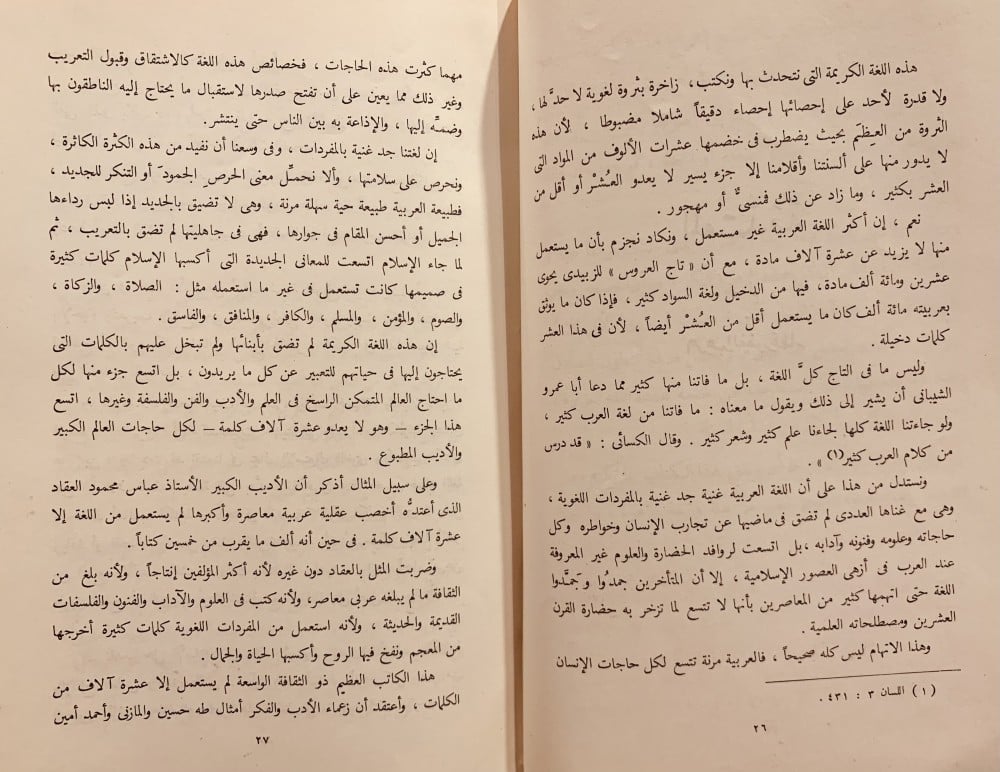 هذه اللغة الكريمة التى نتحدث بها ونكتب، زاخرة بثروة لغوية لا حدَّ لها،
ولا قدرة لأحد على إحصائها إحصاء دقيقاً شاملا مضبوطا ، لأن هذه
الثروة من العِظَم بحيث يضطرب فى خضمها عشرات الألوف من المواد التى
لا يدور منها على ألسنتنا وأقلامنا إلا جزء يسير لا يعدو العُشْر أو أقل من
العشر بكثير ، وما زاد عن ذلك فمنسىٌّ أو مهجور .
نعم ، إن أكثر اللغة العربية غير مستعمل ، ونكاد نجزم بأن ما يستعمل
منها لا يزيد عن عشرة آلاف مادة ، مع أن « تاج العروس » للزبيدى يحوى
عشرين ومائة ألف مادة، فيها من الدخيل ولغة السواد كثير ، فإذا كان ما يوثق
بعربيته مائة ألف كان ما يستعمل أقل من العُشْر أيضاً ، لأن فى هذا العشر
كلمات دخيلة .
وليس ما فى التاج كلَّ اللغة ، بل ما فاتنا منها كثير مما دعا أبا عمرو
الشيبانى أن يشير إلى ذلك ويقول ما معناه : ما فاتنا من لغة العرب كثير ،
ولو جاءتنا اللغة كلها لجاءنا علم كثير وشعر كثير . وقال الكسائى : « قد درس
من كلام العرب كثير(١) » .
ونستدل من هذا على أن اللغة العربية غنية جد غنية بالمفردات اللغوية ،
وهى مع غناها العددى لم تضق فى ماضيها عن تجارب الإنسان وخواطره وكل
حاجاته وعلومه وفنونه وآدابه ، بل اتسعت لروافد الحضارة والعلوم غير المعروفة
عند العرب فى أزهى العصور الإسلامية ، إلا أن المتأخرين جمدُوا وجَمَّدوا
اللغة حتى اتهمها كثير من المعاصرين بأنها لا تتسع لما تزخر به حضارة القرن
العشرين ومصطلحاته العلمية .
وهذا الاتهام ليس كله صحيحاً ، فالعربية مرنة تتسع لكل حاجات الإنسان
(١) اللسان ٣ : ٤٣١ .
٢٦
مهما كثرت هذه الحاجات ، فخصائص هذه اللغة كالاشتقاق وقبول التعريب
وغير ذلك مما يعين على أن تفتح صدرها لاستقبال ما يحتاج إليه الناطقون بها
وضمِّه إليها ، والإذاعة به بين الناس حتى ينتشر.
إن لغتنا جد غنية بالمفردات ، وفى وسعنا أن نفيد من هذه الكثرة الكاثرة ،
ونحرص على سلامتها ، وألا نحمِّل معنى الحرصِ الجمودَ أو التنكر للجديد ،
فطبيعة العربية طبيعة حية سهلة مرنة ، وهى لا تضيق بالجديد إذا لبس رداءها
الجميل أو أحسن المقام فى جوارها ، فهى فى جاهليتها لم تضق بالتعريب ، ثم
لما جاء الإسلام اتسعت للمعانى الجديدة التى أكسبها الإسلام كلمات كثيرة
فى صميمها كانت تستعمل فى غير ما استعمله مثل : الصلاة ، والزكاة ،
والصوم ، والمؤمن ، والمسلم ، والكافر ، والمنافق ، والفاسق .
إن هذه اللغة الكريمة لم تضق بأبنائها ولم تبخل عليهم بالكلمات التى
يحتاجون إليها فى حياتهم للتعبير عن كل ما يريدون ، بل اتسع جزء منها لكل
ما احتاج العالم المتمكن الراسخ فى العلم والأدب والفن والفلسفة وغيرها ، اتسع
هذا الجزء – وهو لا يعدو عشرة آلاف كلمة – لكل حاجات العالم الكبير
والأديب المطبوع .
وعلى سبيل المثال أذكر أن الأديب الكبير الأستاذ عباس محمود العقاد
الذى أعتدُّه أخصب عقلية عربية معاصرة وأكبرها لم يستعمل من اللغة إلا
عشرة آلاف كلمة . فى حين أنه ألف ما يقرب من خمسين كتاباً .
وضربت المثل بالعقاد دون غيره لأنه أكثر المؤلفين إنتاجاً ، ولأنه بلغ من
الثقافة ما لم يبلغه عربى معاصر، ولأنه كتب فى العلوم والآداب والفنون والفلسفات
القديمة والحديثة ، ولأنه استعمل من المفردات اللغوية كلمات كثيرة أخرجها
من المعجم ونفخ فيها الروح وأكسبها الحياة والجمال .
هذا الكاتب العظيم ذو الثقافة الواسعة لم يستعمل إلا عشرة آلاف من
الكلمات ، وأعتقد أن زعماء الأدب والفكر أمثال طه حسين والمازنى وأحمد أمين
٢٧